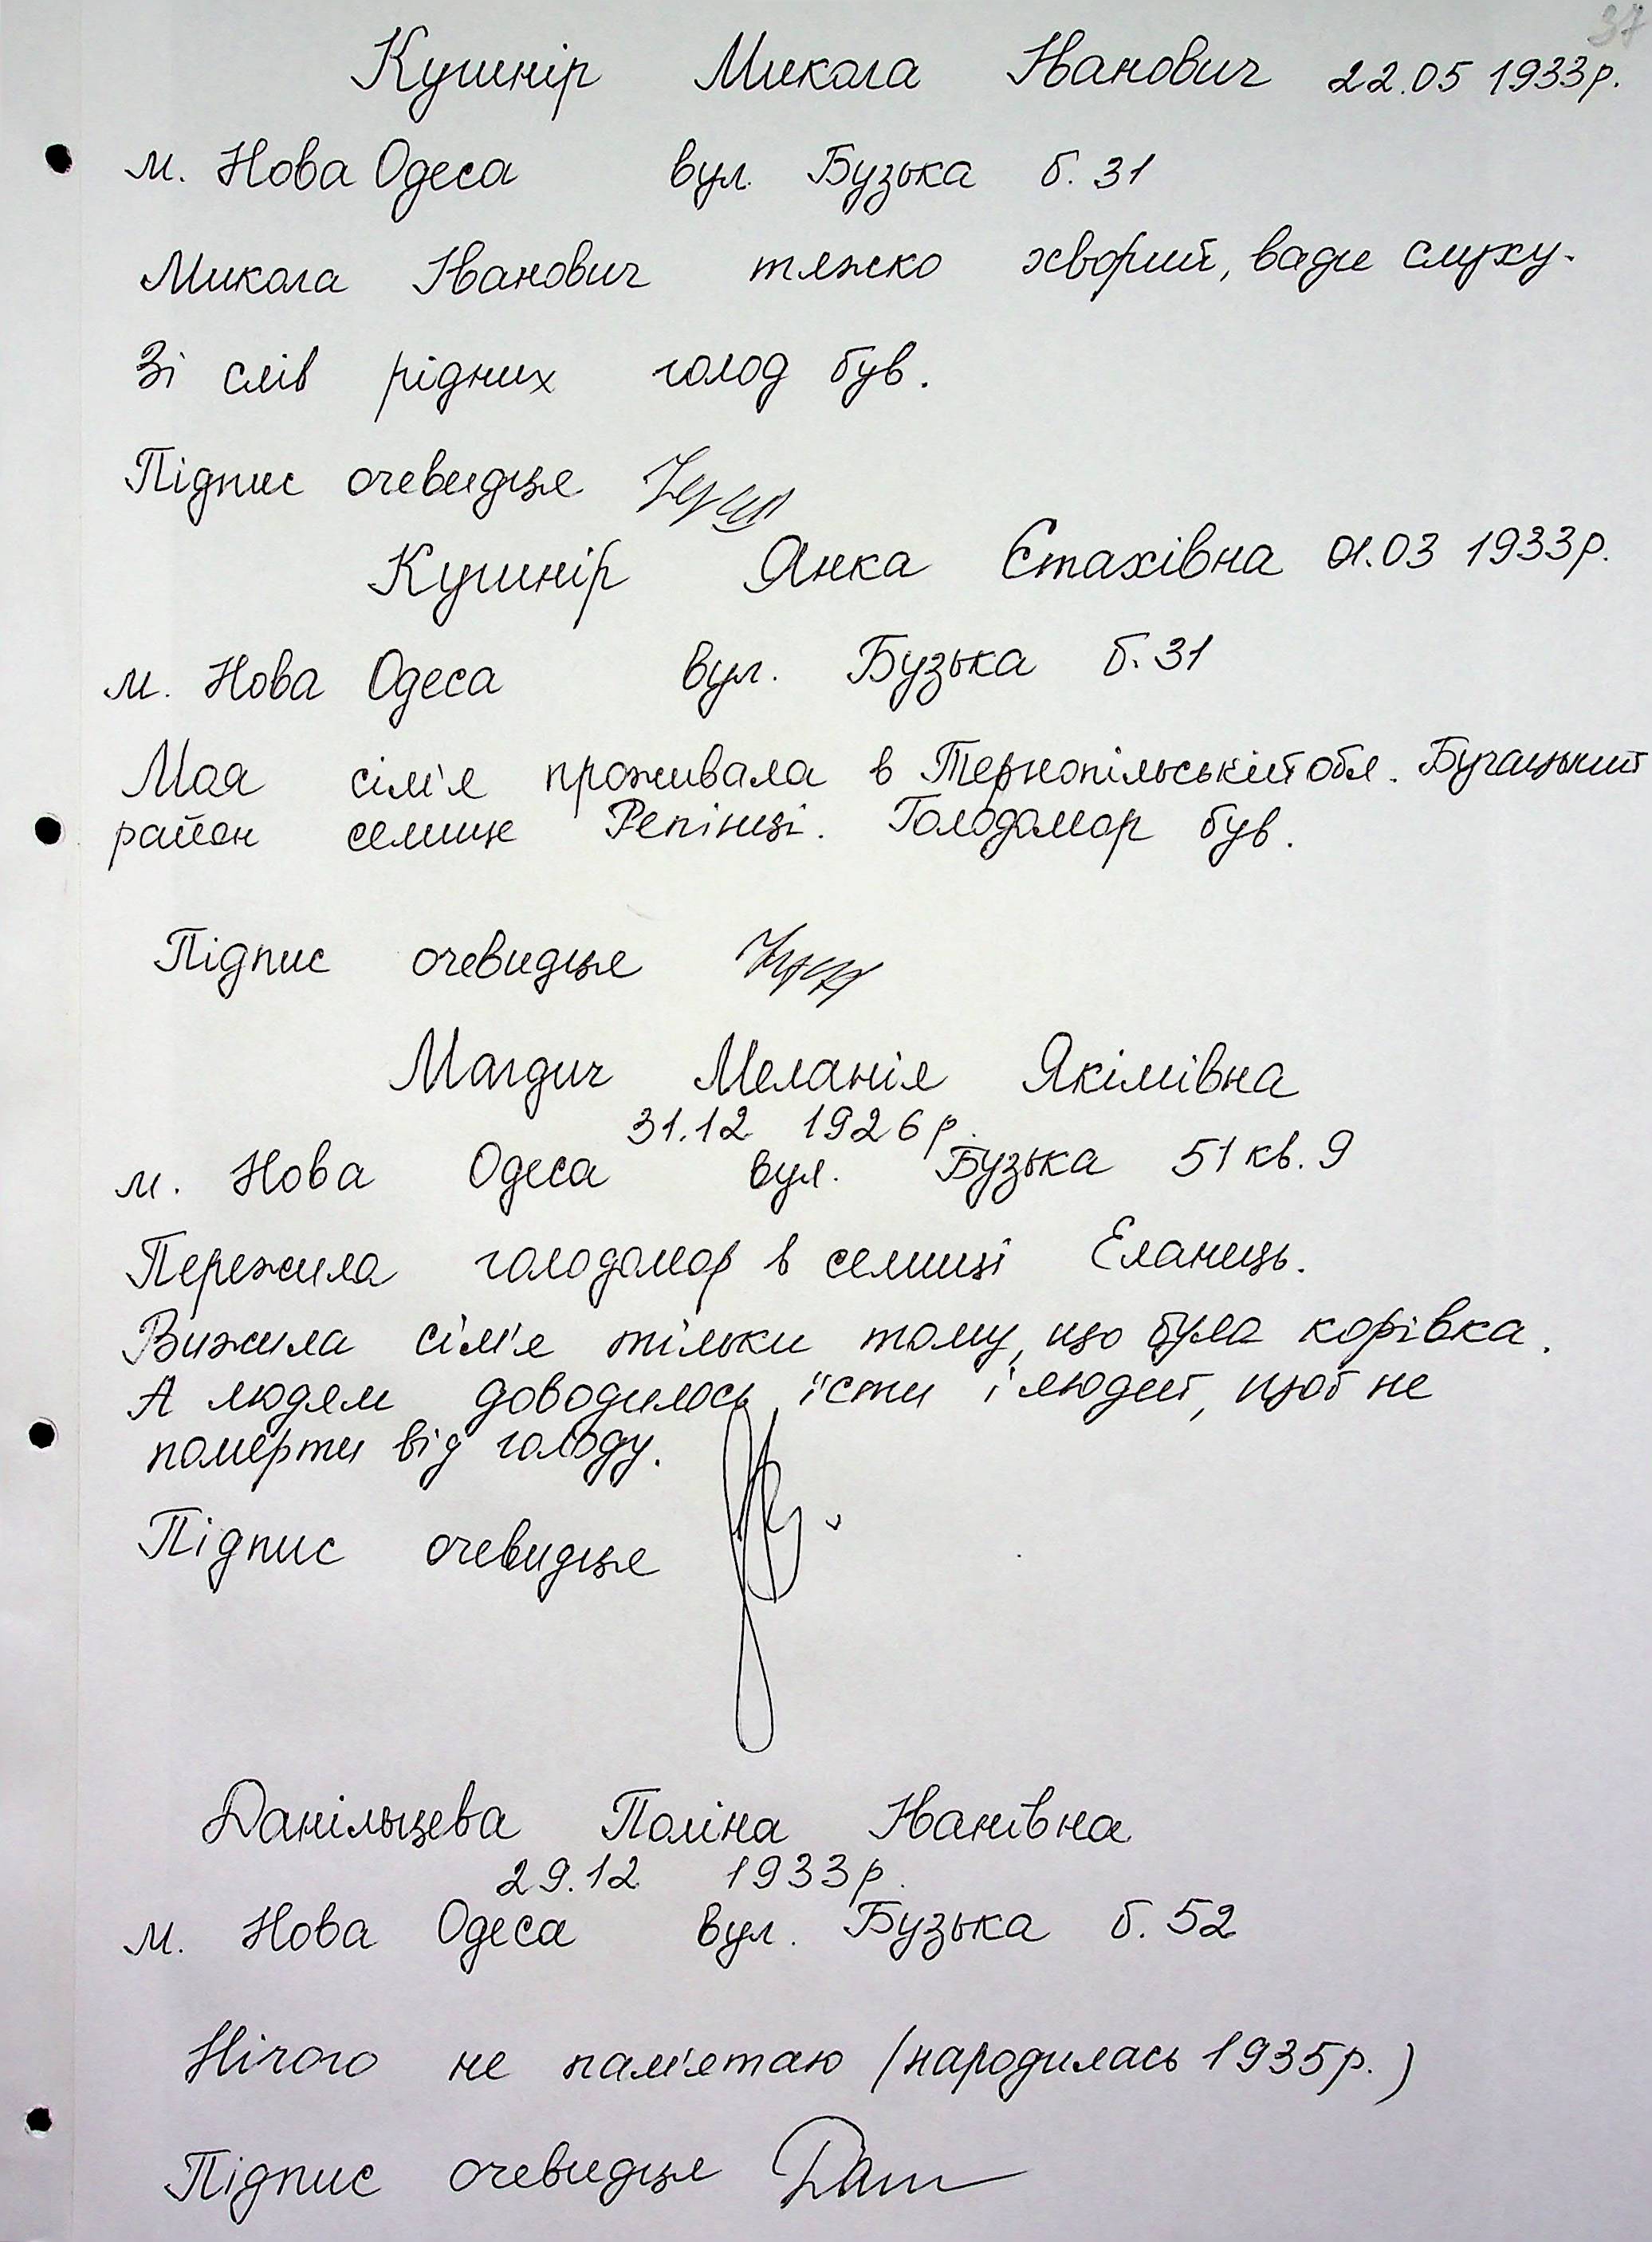 37
Кушнір Микола Іванович 22.05 1933р.
м. Нова Одеса вул. Бузька б. 31
Микола Іванович тяжко хворий, вади слуху.
Зі слів рідних голод був.
Підпис очевидця
Кушнір Янка Єтахівна 01.03 1933р.
м. Нова Одеса вул. Бузька б. 31
Моя сім'я проживала в Тернопільській обл. Бучацький
район селище Репінці. Голодомор був.
Підпис очевидця
Магдич Меланія Якімівна
31.12 1926р.
м. Нова Одеса вул. Бузька 51 кв. 9
Пережила голодомор в селищі Еланець.
Вижила сім'я тільки тому, що була корівка.
А людям доводилось їсти і людей, щоб не
померти від голоду.
Підпис очевидця
Данільцева Поліна Іванівна
29.12 1933р.
м. Нова Одеса вул. Бузька б. 52
Нічого не пам'ятаю (народилась 1935р.)
Підпис очевидця Дан